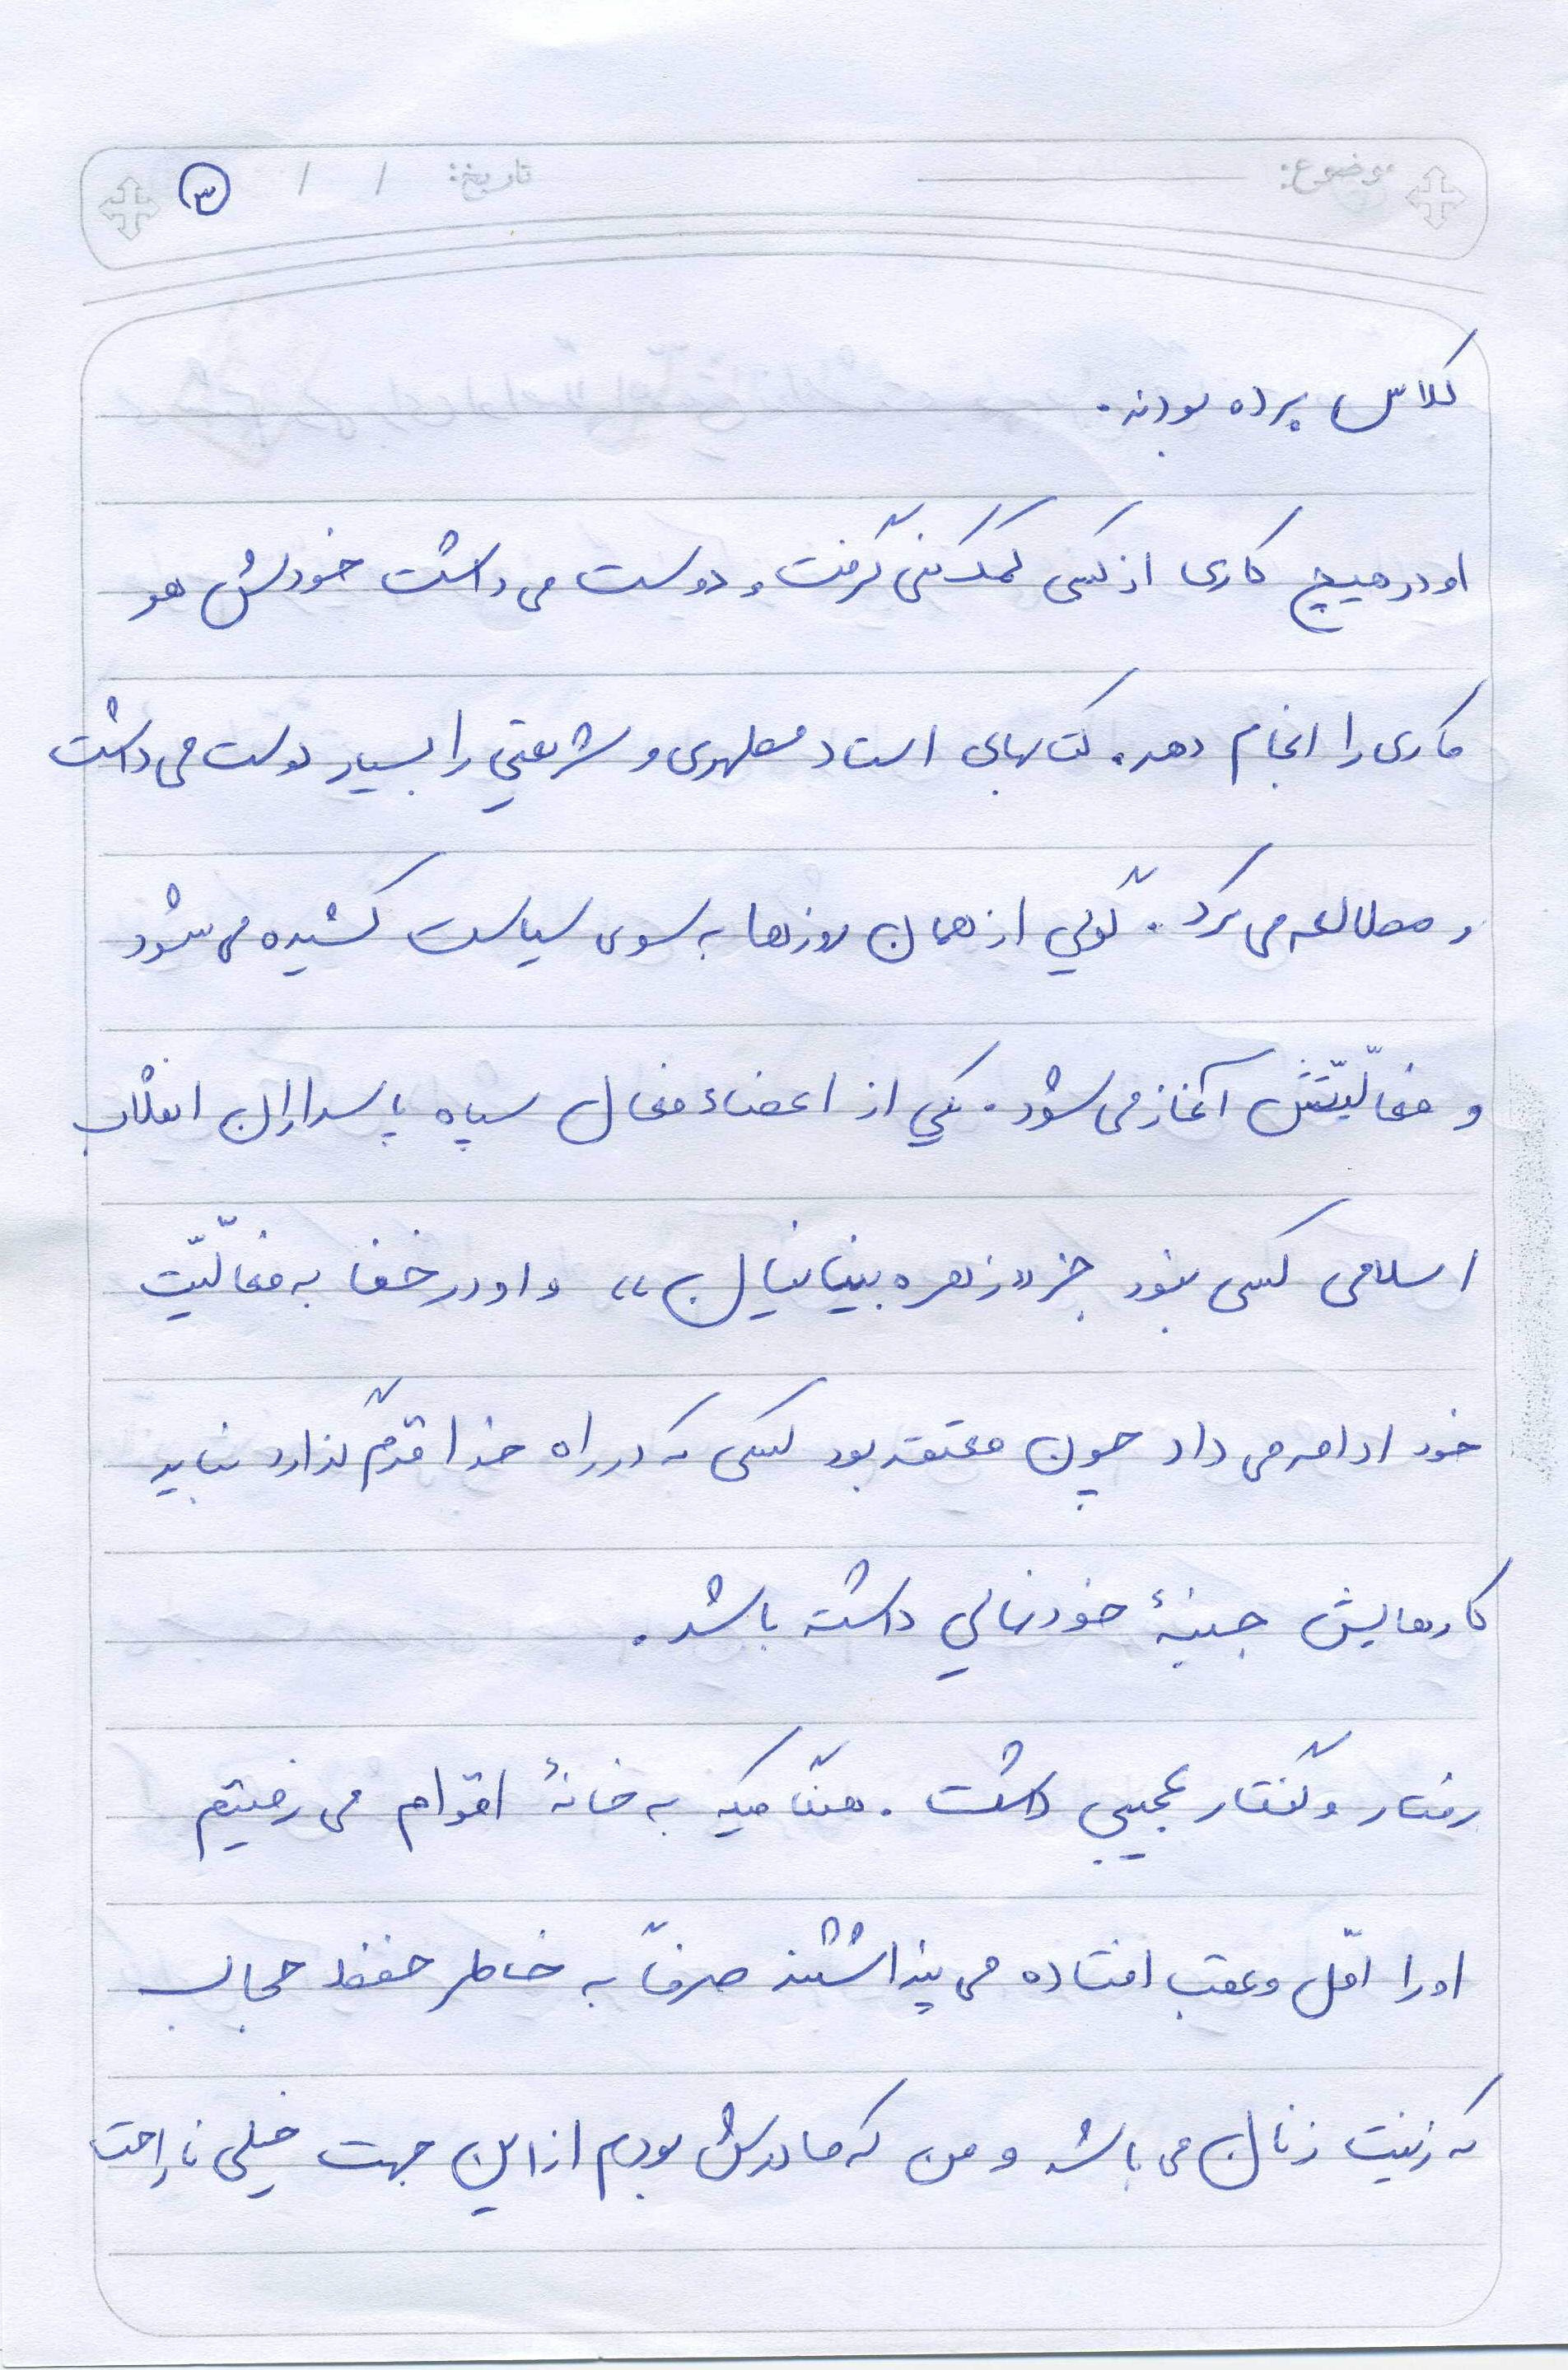 موضوع: تاریخ: / / ۳
کلاس برده بودند.
او در هیچ کاری از کسی کمک نمی گرفت و دوست می داشت خودش هر
کاری را انجام دهد. کتابهای استاد مطهری و شریعتی را بسیار دوست می داشت
و مطالعه می کرد. گوئی از همان روزها به سوی سیاست کشیده می شود
و فعالّیّتش آغاز می شود. یکی از اعضاء فعال سپاه پاسداران انقلاب
اسلامی کسی نبود جز «زهره بینائیان» و او در خفا به فعالّیّت
خود ادامه می داد چون معتقد بود کسی که در راه خدا قدم گذارد نباید
کارهایش جنبهٔ خودنمائی داشته باشد.
رفتار و گفتار عجیبی داشت. هنگامیکه به خانهٔ اقوام می رفتیم
او را امّل و عقب افتاده می پنداشتند صرفاً به خاطر حفظ حجاب
که زینت زنان می باشد و من که مادرش بودم از این جهت خیلی ناراحت